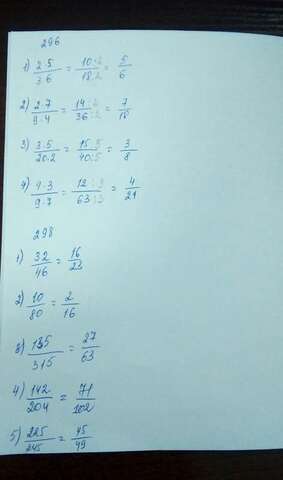 296
1) 2·5/3·6 = 10:2/18:2 = 5/6
2) 2·7/9·4 = 14:2/36:2 = 7/18
3) 3·5/20·2 = 15:5/40:5 = 3/8
4) 4·3/9·7 = 12:3/63:3 = 4/21
298
1) 32/46 = 16/23
2) 10/80 = 2/16
3) 135/315 = 27/63
4) 142/204 = 71/102
5) 225/245 = 45/49